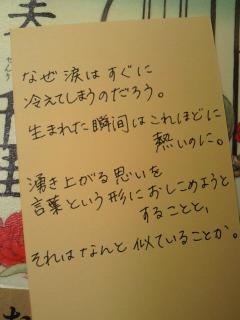 なぜ 涙は すぐに
冷えてしまうのだろう。
生まれた瞬间は これほどに
熱いのに。
湧き上がる思いを
言葉という形に おしこめようと
することと、
それは なんと 似ていることか。